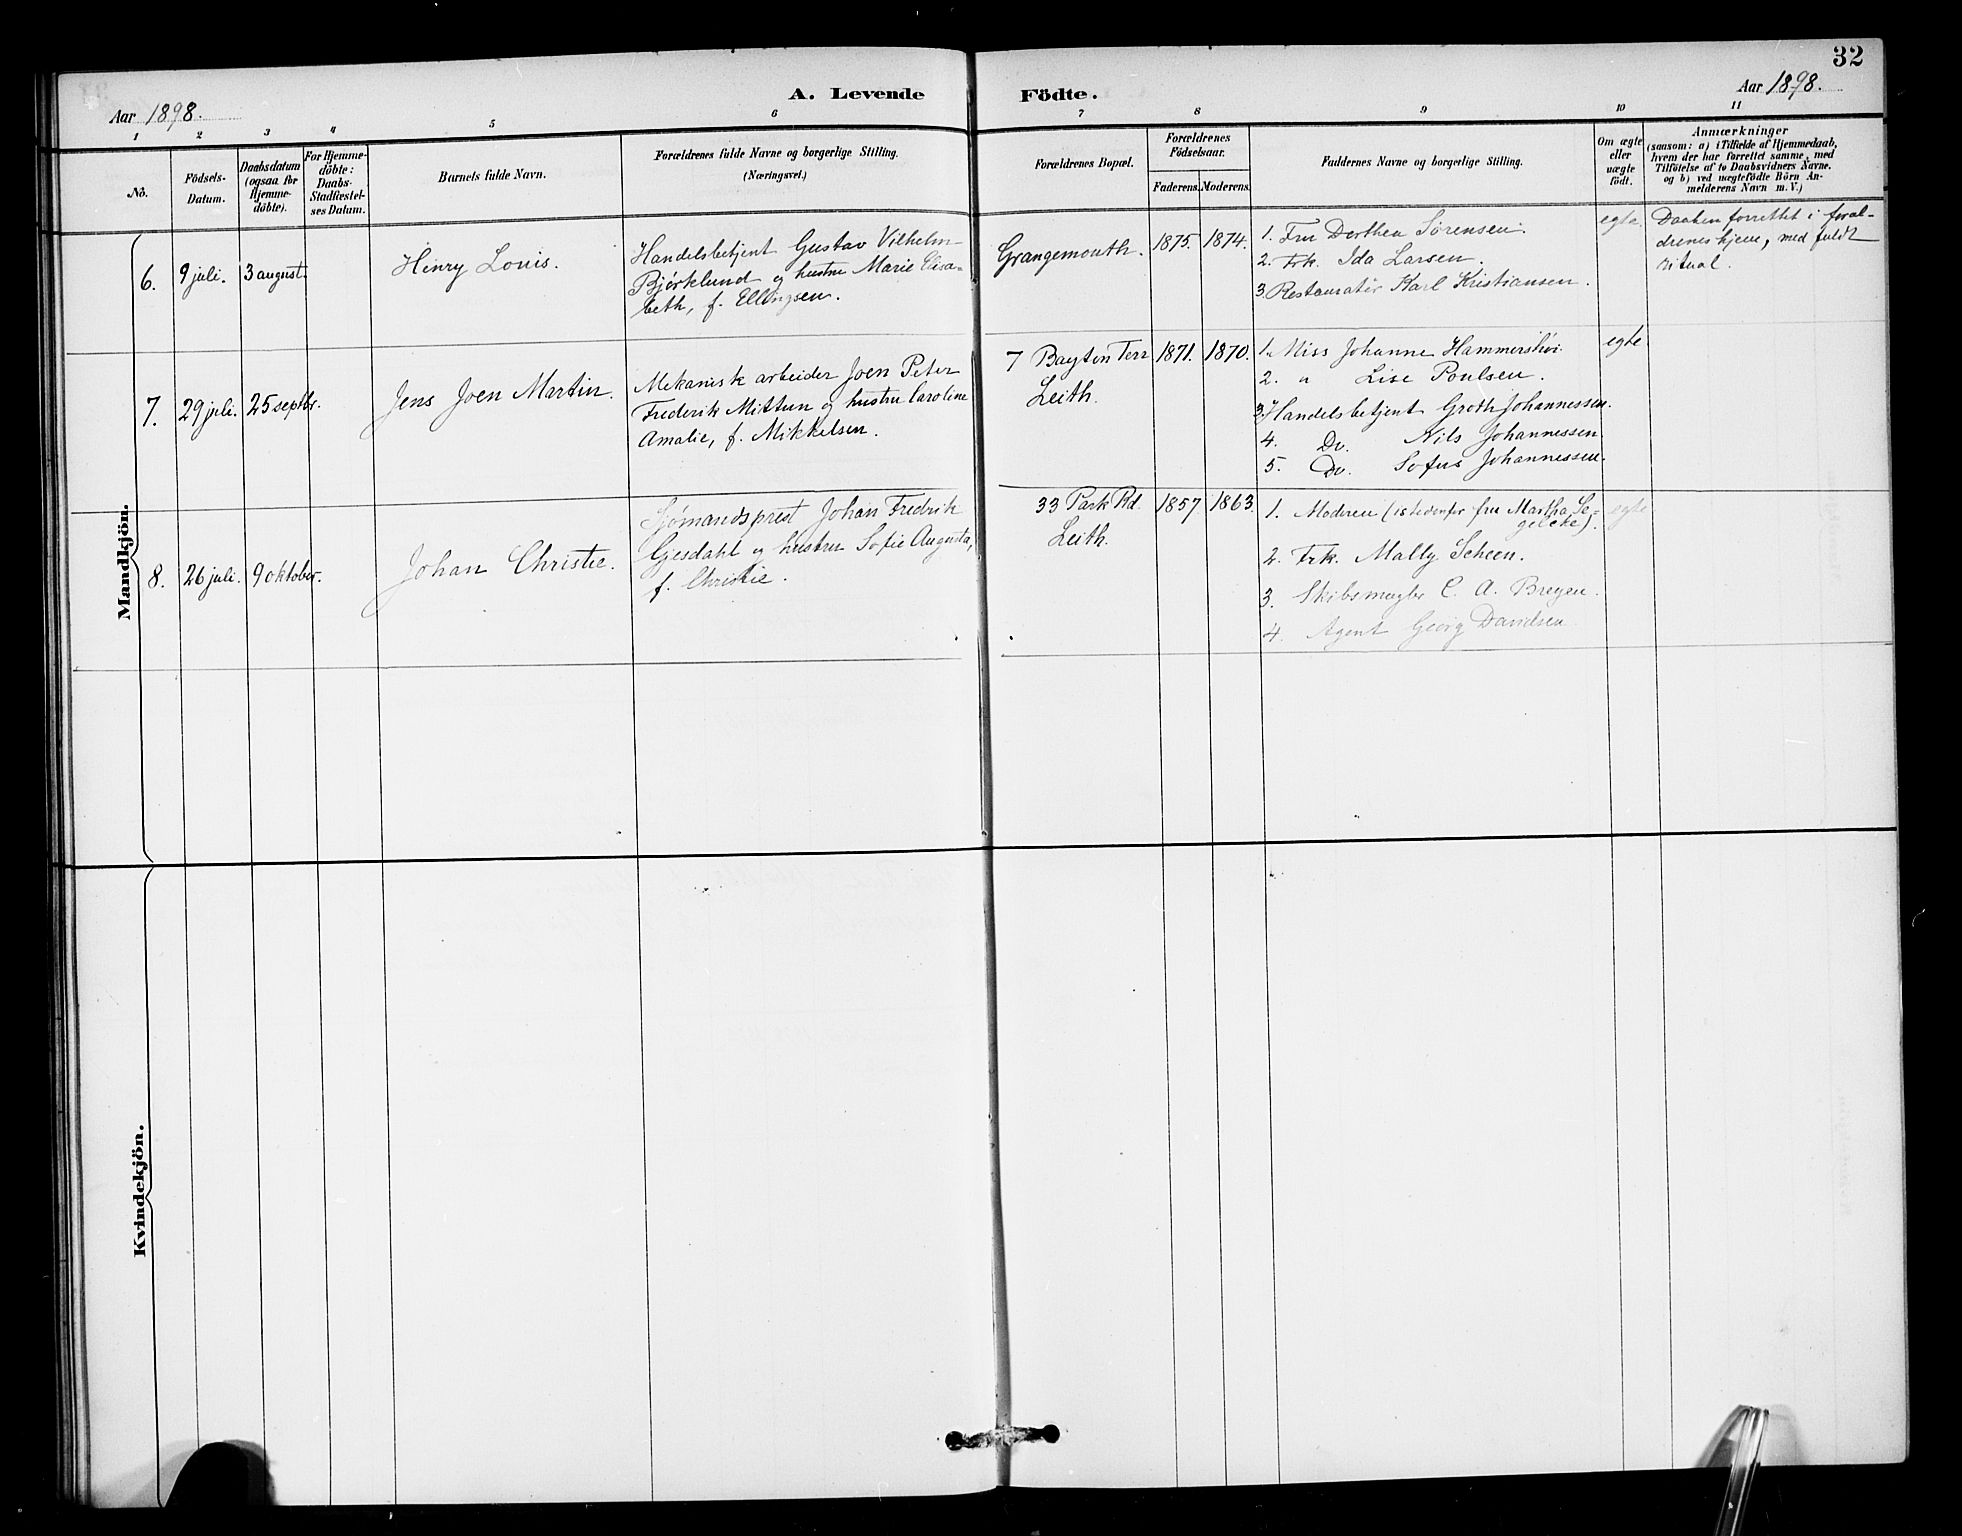 32
Aar 1898.
A. Levende Födte.
Aar 1898.
1 2 3 4 5 6 7 8 9 10 11
No.
Födsels-
Datum.
Daabsdatum
(ogsaa for
Hjemme-
döbte).
For Hjemme-
döbte:
Daabs-
Stadfæstel-
ses Datum.
Barnets fulde Navn.
Forældrenes fulde Navne og borgerlige Stilling.
(Næringsvei.)
Forældrenes Bopæl.
Forældrenes
Födselsaar.
Faderens. Moderens.
Faddernes Navne og borgerlige Stilling.
Om ægte
eller
uægte
födt.
Anmærkninger
(saasom: a) i Tilfælde af Hjemmedaab,
hvem der har forrettet samme, med
Tilföielse af to Daabsvidners Navne.
og b) ved uægtefödte Börn An-
melderens Navn m. V.)
Mandkjön.
6. 9 juli. 3 august.
Henry Louis.
Handelsbetjent Gustav Vilhelm
Bjørklund og hustru Marie Elisa-
beth, f. Ellingsen.
Grangemouth.
1875. 1874.
1. Fru Dorthea Sørensen.
2. Frk. Ida Larsen.
3. Restauratør Karl Kristiansen.
egte
Daaben forrettet i foræl-
drenes hjem, med fuldt
ritual.
7. 29 juli. 25 septbr.
Jens Joen Martin.
Mekanisk arbeider Joen Peter
Frederik Mittun og hustru Caroline
Amalie, f. Mikkelsen.
7 Bayton Terr
Leith.
1871. 1870.
1. Miss Johanne Hammershøi
2. " Lise Poulsen.
3. Handelsbetjent Groth Johannessen.
4. Do. Nils Johannessen
5. Do. Sofus Johannessen.
egte
8. 26 juli. 9 oktober.
Johan Christie.
Sjømandsprest Johan Fredrik
Gjesdahl og hustru Sofie Augusta,
f. Christie.
33 Park Rd.
Leith.
1857 1863
1. Moderen (istedenfor fru Martha Se-
gelcke).
2. Frk. Mally Scheen.
3. Skibsmægler C. A. Breyen.
4. Agent Georg Davidsen
egte
Kvindekjön.